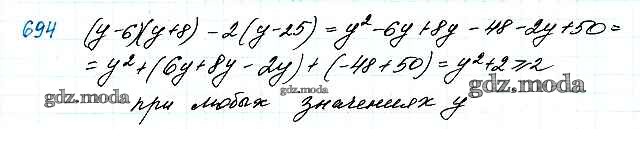 694 (y-6)(y+8) - 2(y-25) = y² - 6y + 8y - 48 - 2y + 50 =
= y² + (6y + 8y - 2y) + (-48 + 50) = y² + 2 ≥ 2
gdz.moda gdz.moda gdz.moda
при любых значениях y